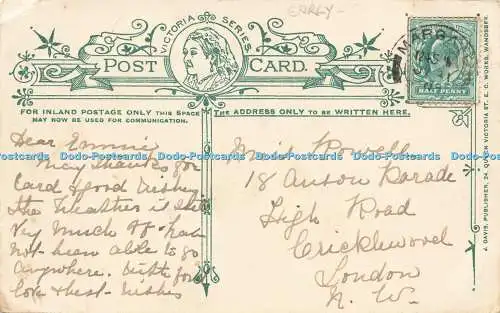 EARLY -
VICTORIA SERIES
POST CARD.
FOR INLAND POSTAGE ONLY THIS SPACE
MAY NOW BE USED FOR COMMUNICATION.
THE ADDRESS ONLY TO BE WRITTEN HERE.
MARGATE
HALF PENNY
Dear Emmie
Many thanks for
Card & good wishes
the Weather is still
Very much off han
not been able to go
anywhere. With fond
love & best wishes
Miss Rowell
18 Anson Parade
High Road
Cricklewood
London
N. W.
J. DAVIS, PUBLISHER, 24, QUEEN VICTORIA ST. E. C. WORKS, WANDSBEK.
Dodo-Postcards Dodo-Postcards Dodo-Postcards Dodo-Postcards Dodo-Postcards